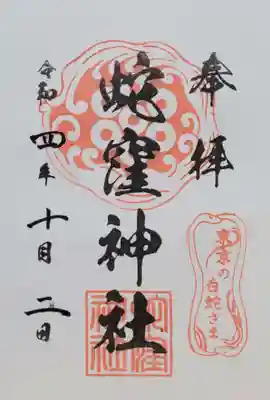 奉拝
蛇窪神社
令和四年十月二日
東京の白蛇さま
蛇窪神社